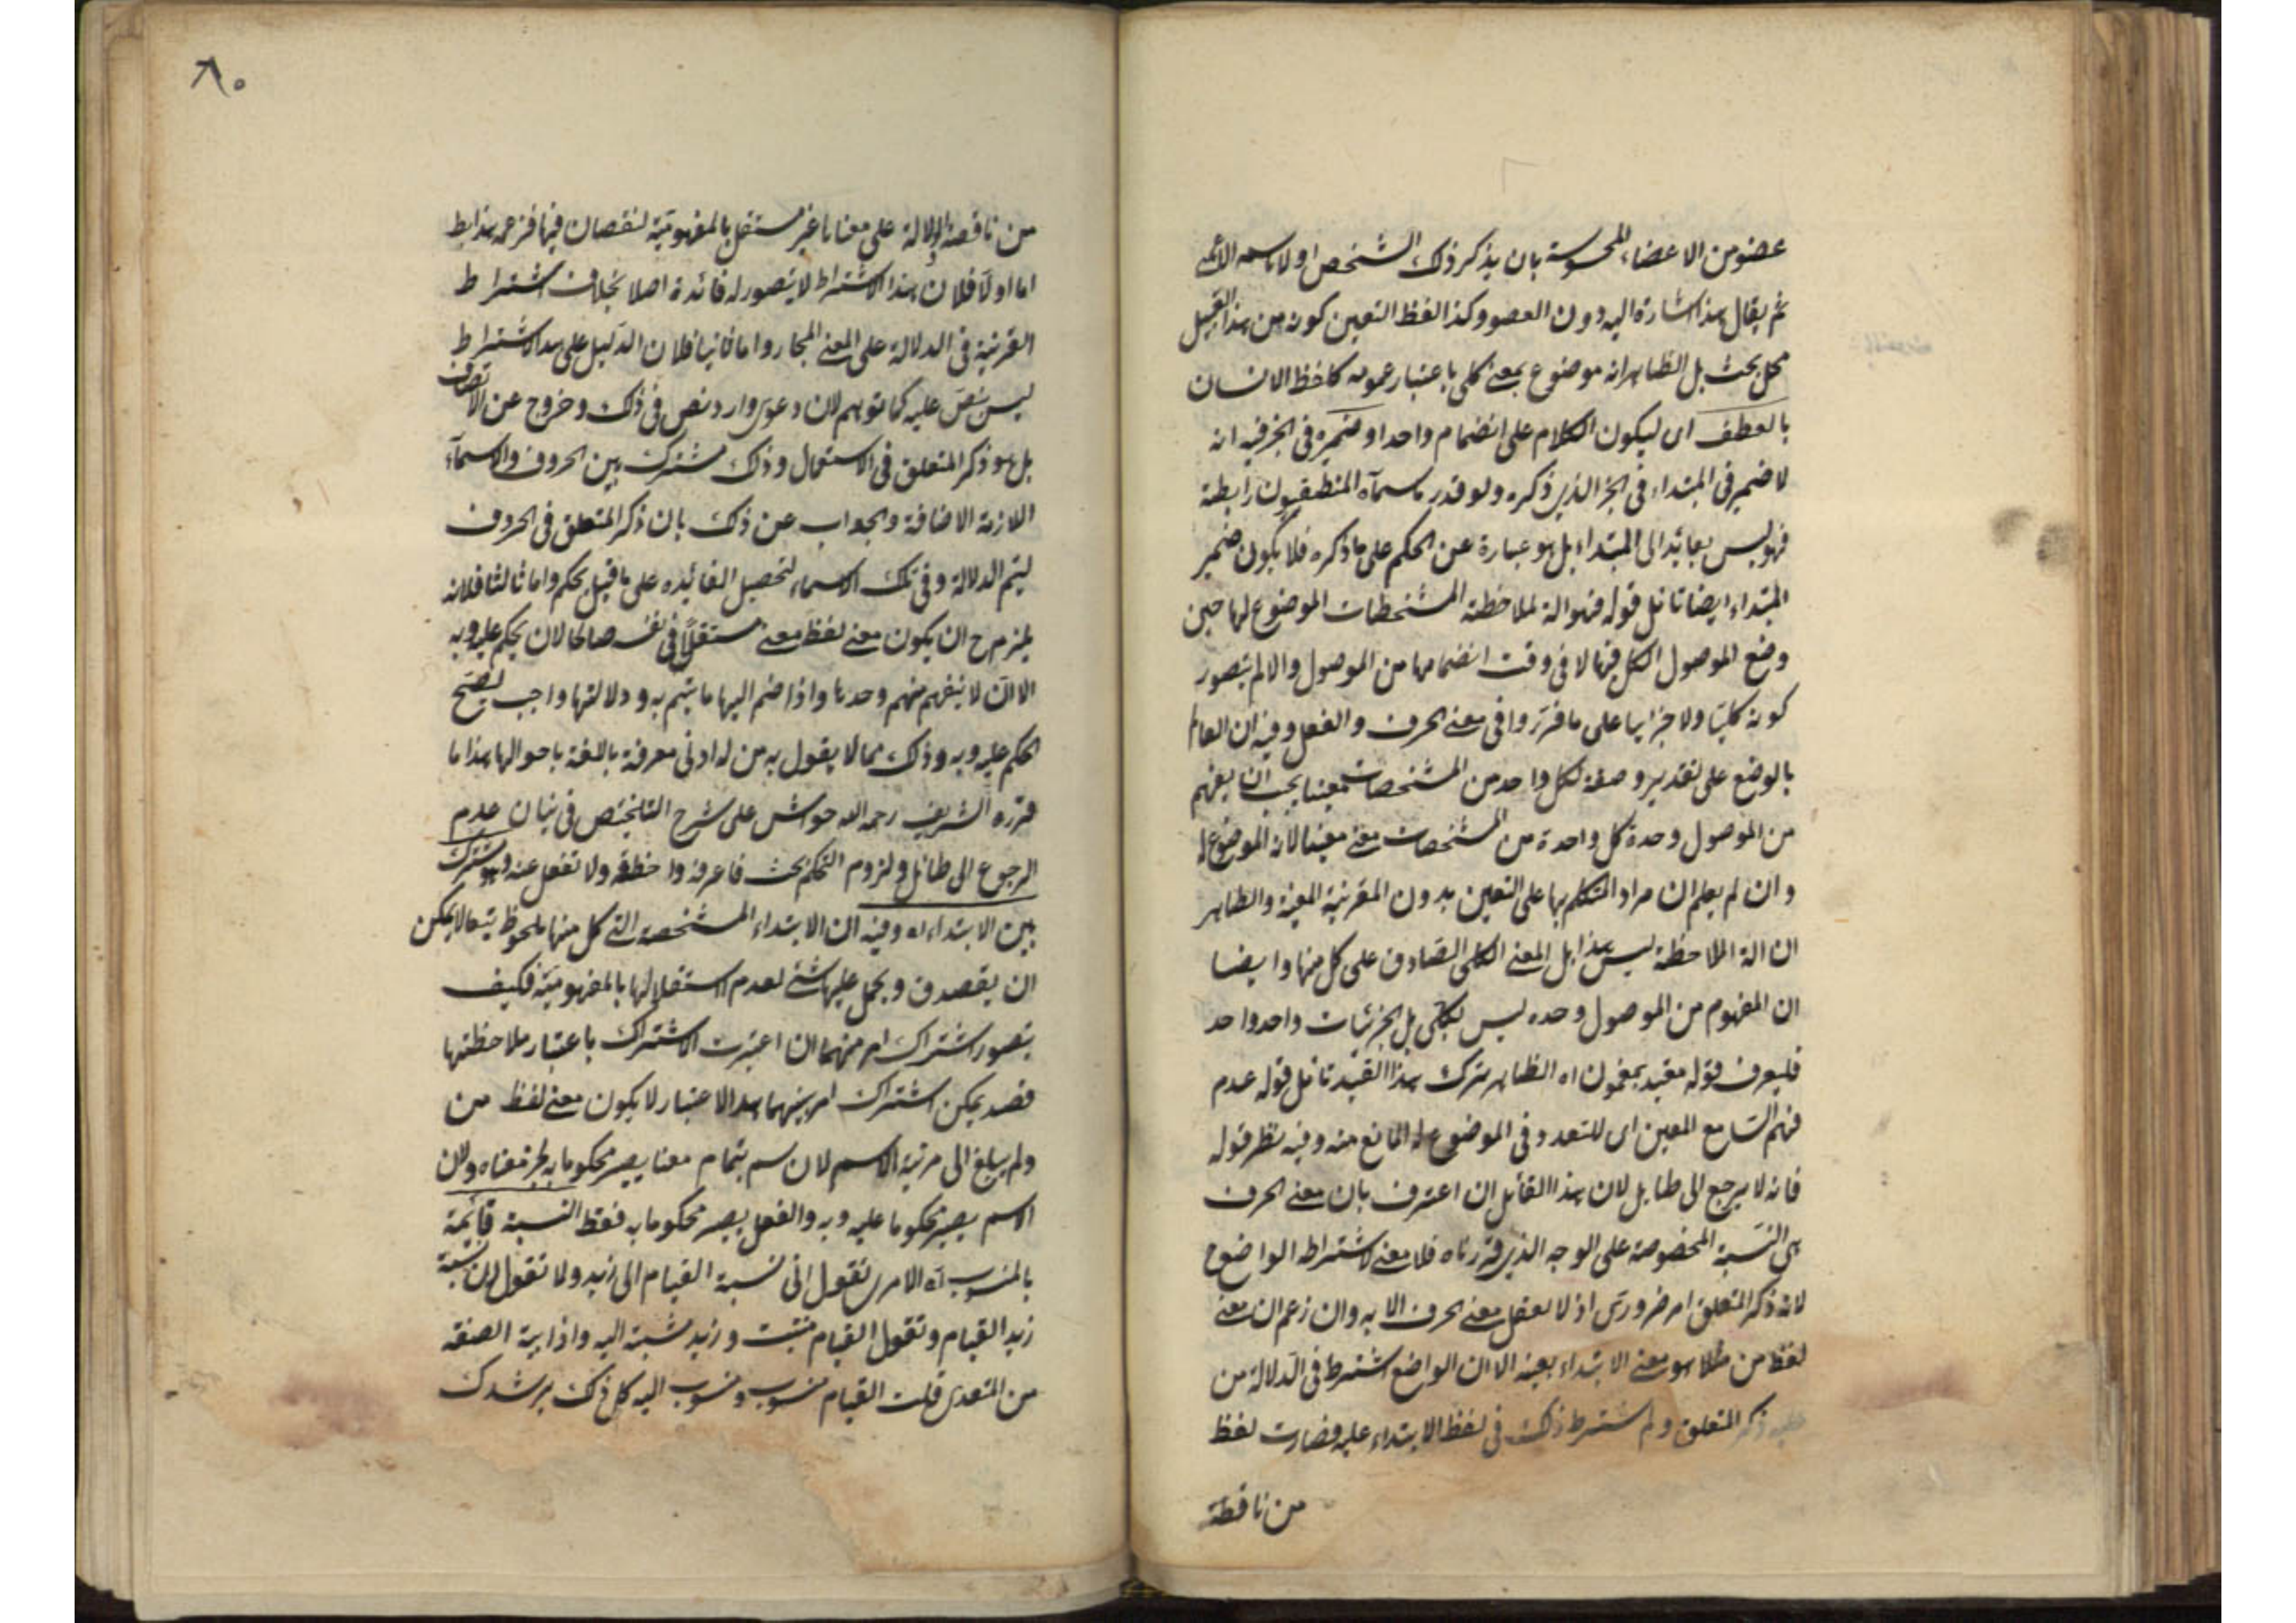 عضو من الاعضاء المحسوسة بان يذكر ذلك الشخص اولا باسمه
ثم يقال هذا اشارة اليه دون العضو وكذا لفظ التعين كونه من هذا القبيل
محل بحث بل الظاهر انه موضوع بمعنى كلي باعتبار عمومه كلفظ الانسان
بالعطف اى ليكون الكلام على انضمام واحد او ضميره فى الجز فيه انه
لا ضمير فى المبتداء فى الجز الذى ذكره ولو قدر ما سماه المنطقيون رابطة
فهو ليس بعائد الى المبتداء بل هو عبارة عن الحكم على ما ذكره فلا يكون ضمير
المبتداء ايضا تامل قوله فهو الة لملاحظة المشخصات الموضوع لها حين
وضع الموصول لكل فيها لا فى وقت انضمامها من الموصول والا لم يتصور
كونه كليا ولا جزايا على ما قرروا فى معنى الحرف والفعل وفيه ان العالم
بالوضع على تقدير وصفه لكل واحد من المشخصات معينا يجب ان يفهم
من الموصول وحده كل واحدة من المشخصات معنى معينا لانه الموضوع له
وان لم يعلم ان مراد المتكلم بها على التعين بدون القرينة المعينة والظاهر
ان الة الملاحظة ليس هذا بل المعنى الكلى الصادق على كل منها وايضا
ان المفهوم من الموصول وحده ليس بكلى بل الجزئيات واحد واحد
فليعرف قوله مقيد بمضمون اه الظاهر ترك هذا القيد تامل قوله عدم
فهم السامع المعين اى للتعدد فى الموضوع له المانع منه وفيه نظر قوله
فانه لا يرجع الى طايل لان هذا القائل ان اعترف بان معنى الحرف
هى النسبة المخصوصة على الوجه الذى قررناه فلا معنى لاشتراط الواضع
لانه ذكر المتعلق امر ضرورى اذ لا يعقل معنى الحرف الا به وان زعم ان معنى
لفظ من مثلا هو معنى الابتداء بعينه الا ان الواضع اشترط فى الدلالة من
عليه ذكر المتعلق ولم اشترط ذلك فى لفظ الابتداء عليه فصارت لفظ
من ناقصة
٨٠
من ناقصة الدلالة على معناها غير مستقل بالمفهومية لنقصان فيها فزعمه هذا
اما اولا فلان هذا الاشتراط لا يتصور له فائدة اصلا بخلاف اشتراط
القرينة فى الدلالة على المعنى المجازى واما ثانيا فلان الدليل على هذا الاشتراط
ليس نص عليه كما توهم لان دعوى وارد نص فى ذلك وخروج عن الانصاف
بل هو ذكر المتعلق فى الاستعمال وذلك مشترك بين الحروف والاسماء
اللازمة الاضافة والجواب عن ذلك بان ذكر المتعلق فى الحروف
ليتم الدلالة وفى تلك الاسماء لتحصيل الفائيده على ما قيل تحكم واما ثالثا فلانه
يلزم ح ان يكون معنى لفظ معنى مستقلا فى نفسه صالحا لان يحكم عليه وبه
الا ان لا ينفهم منهم وحدها واذا ضم اليها ما يتم به ودلالتها واجب ليصح
الحكم عليه وبه وذلك مما لا يقول به من له ادنى معرفة باللغة باحوالها هذا ما
قرره الشريف رحمه الله حواش على شرح التلخيص فى بيان عدم
الرجوع الى طائل ولزوم التحكم بحث فاعرفه واحفظه ولا تغفل عنه وهو مشترك
بين الابتداء اه وفيه ان الابتداء المشخصة التى كل منها ملحوظ تبعا لا يمكن
ان يقصد ويحمل عليها شئ لعدم استقلالها بالمفهومية فكيف
يتصور اشتراك امر منهما ان اعتبرت الاشتراك باعتبار ملاحظتها
قصد يمكن اشتراك امر بينهما بهذا الاعتبار لا يكون معنى لفظ من
ولم يبلغ الى مرتبة الاسم لان اسم بتمام معنا يصير محكوما به لجز معناه ولان
الاسم يصير محكوما عليه وبه والفعل يصير محكوما به فقط النسبة قائمة
بالمنسوب اه الا مرى تقول انى نسبة القيام الى زيد ولا تقول ان نسبة
زيد القيام وتقول القيام مثبت وزيد مثبت اليه واذا الصفة
من المتعدى قلت القيام منسوب ومنسوب اليه كل ذلك يرشدك